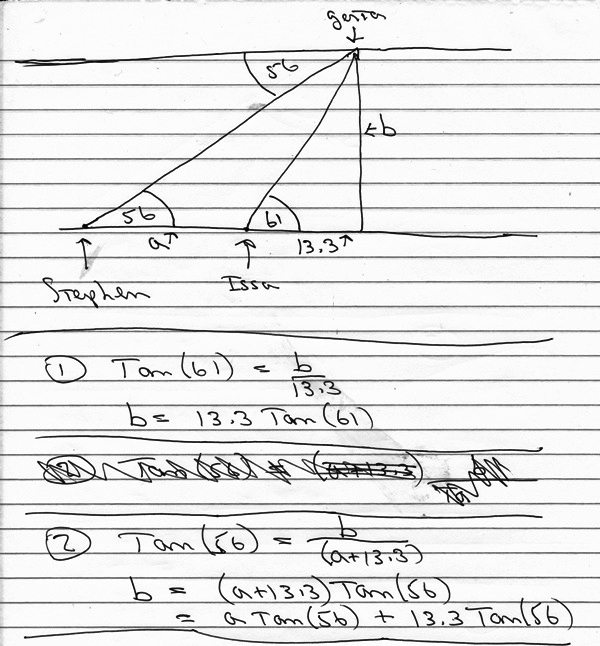 56
b
56
61
a
13.3
Stephen
Issa
① Tan(61) = b/13.3
b = 13.3 Tan(61)
② Tan(56) = b/(a+13.3)
b = (a+13.3)Tan(56)
= a Tan(56) + 13.3 Tan(56)